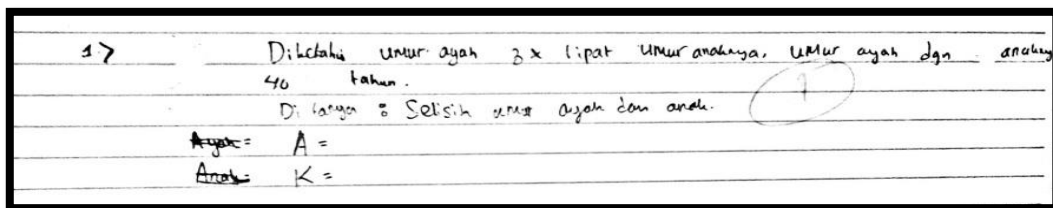 1.> Diketahui umur ayah 3x lipat umur anaknya, umur ayah dgn anaknya
40 tahun.
Ditanya : Selisih umur ayah dan anak.
A =
K =